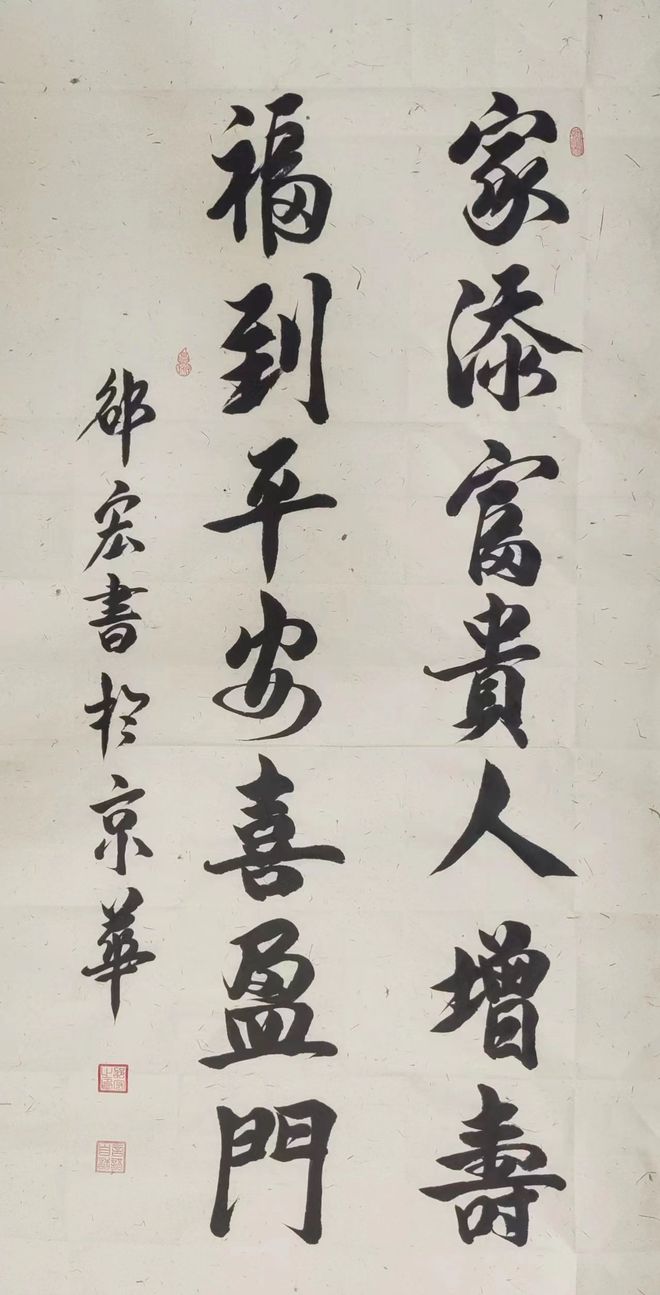 家添富貴人增壽
福到平安喜盈門
邰宏書於京華